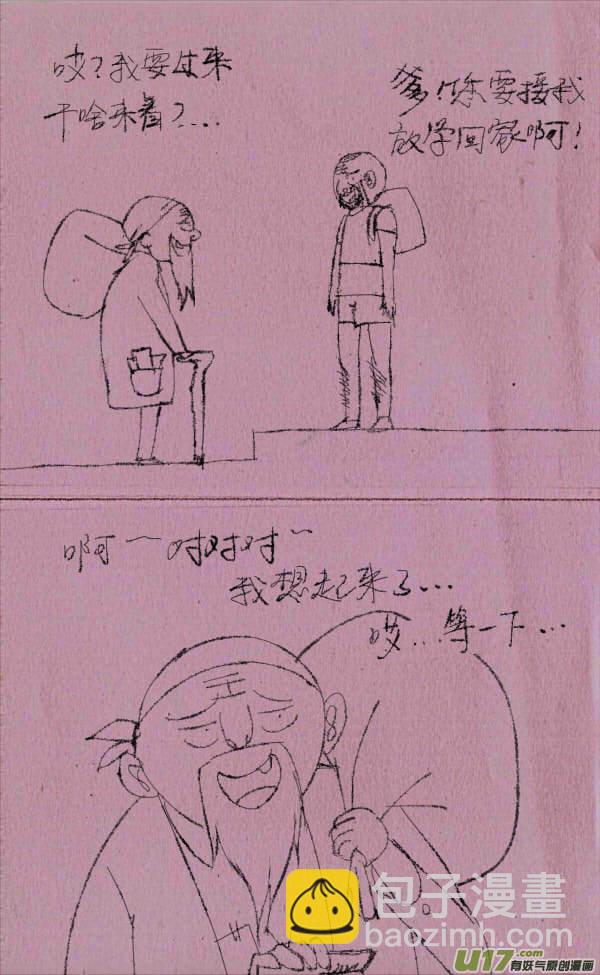 哎？我要过来
干啥来着？...
爹！您要接我
放学回家啊！
啊~对对对~
我想起来了...
哎...等一下...
王
包子漫畫
baozimh.com
U17.com
有妖气原创漫画